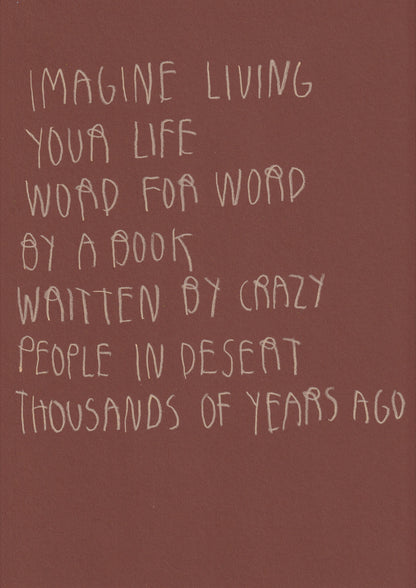 IMAGINE LIVING
YOUR LIFE
WORD FOR WORD
BY A BOOK
WRITTEN BY CRAZY
PEOPLE IN DESERT
THOUSANDS OF YEARS AGO